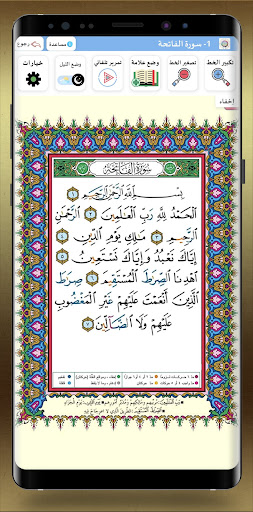 1- سورة الفاتحة
مساعدة
رجوع
تكبير الخط
تصغير الخط
وضع علامة
تمرير تلقائي
وضع الليل
خيارات
إخفاء
سُورَةُ الفَاتِحَةِ
بِسْمِ ٱللَّهِ ٱلرَّحْمَٰنِ ٱلرَّحِيمِ ١
ٱلْحَمْدُ لِلَّهِ رَبِّ ٱلْعَٰلَمِينَ ٢ ٱلرَّحْمَٰنِ
ٱلرَّحِيمِ ٣ مَٰلِكِ يَوْمِ ٱلدِّينِ ٤
إِيَّاكَ نَعْبُدُ وَإِيَّاكَ نَسْتَعِينُ ٥
ٱهْدِنَا ٱلصِّرَٰطَ ٱلْمُسْتَقِيمَ ٦ صِرَٰطَ
ٱلَّذِينَ أَنْعَمْتَ عَلَيْهِمْ غَيْرِ ٱلْمَغْضُوبِ
عَلَيْهِمْ وَلَا ٱلضَّآلِّينَ ٧